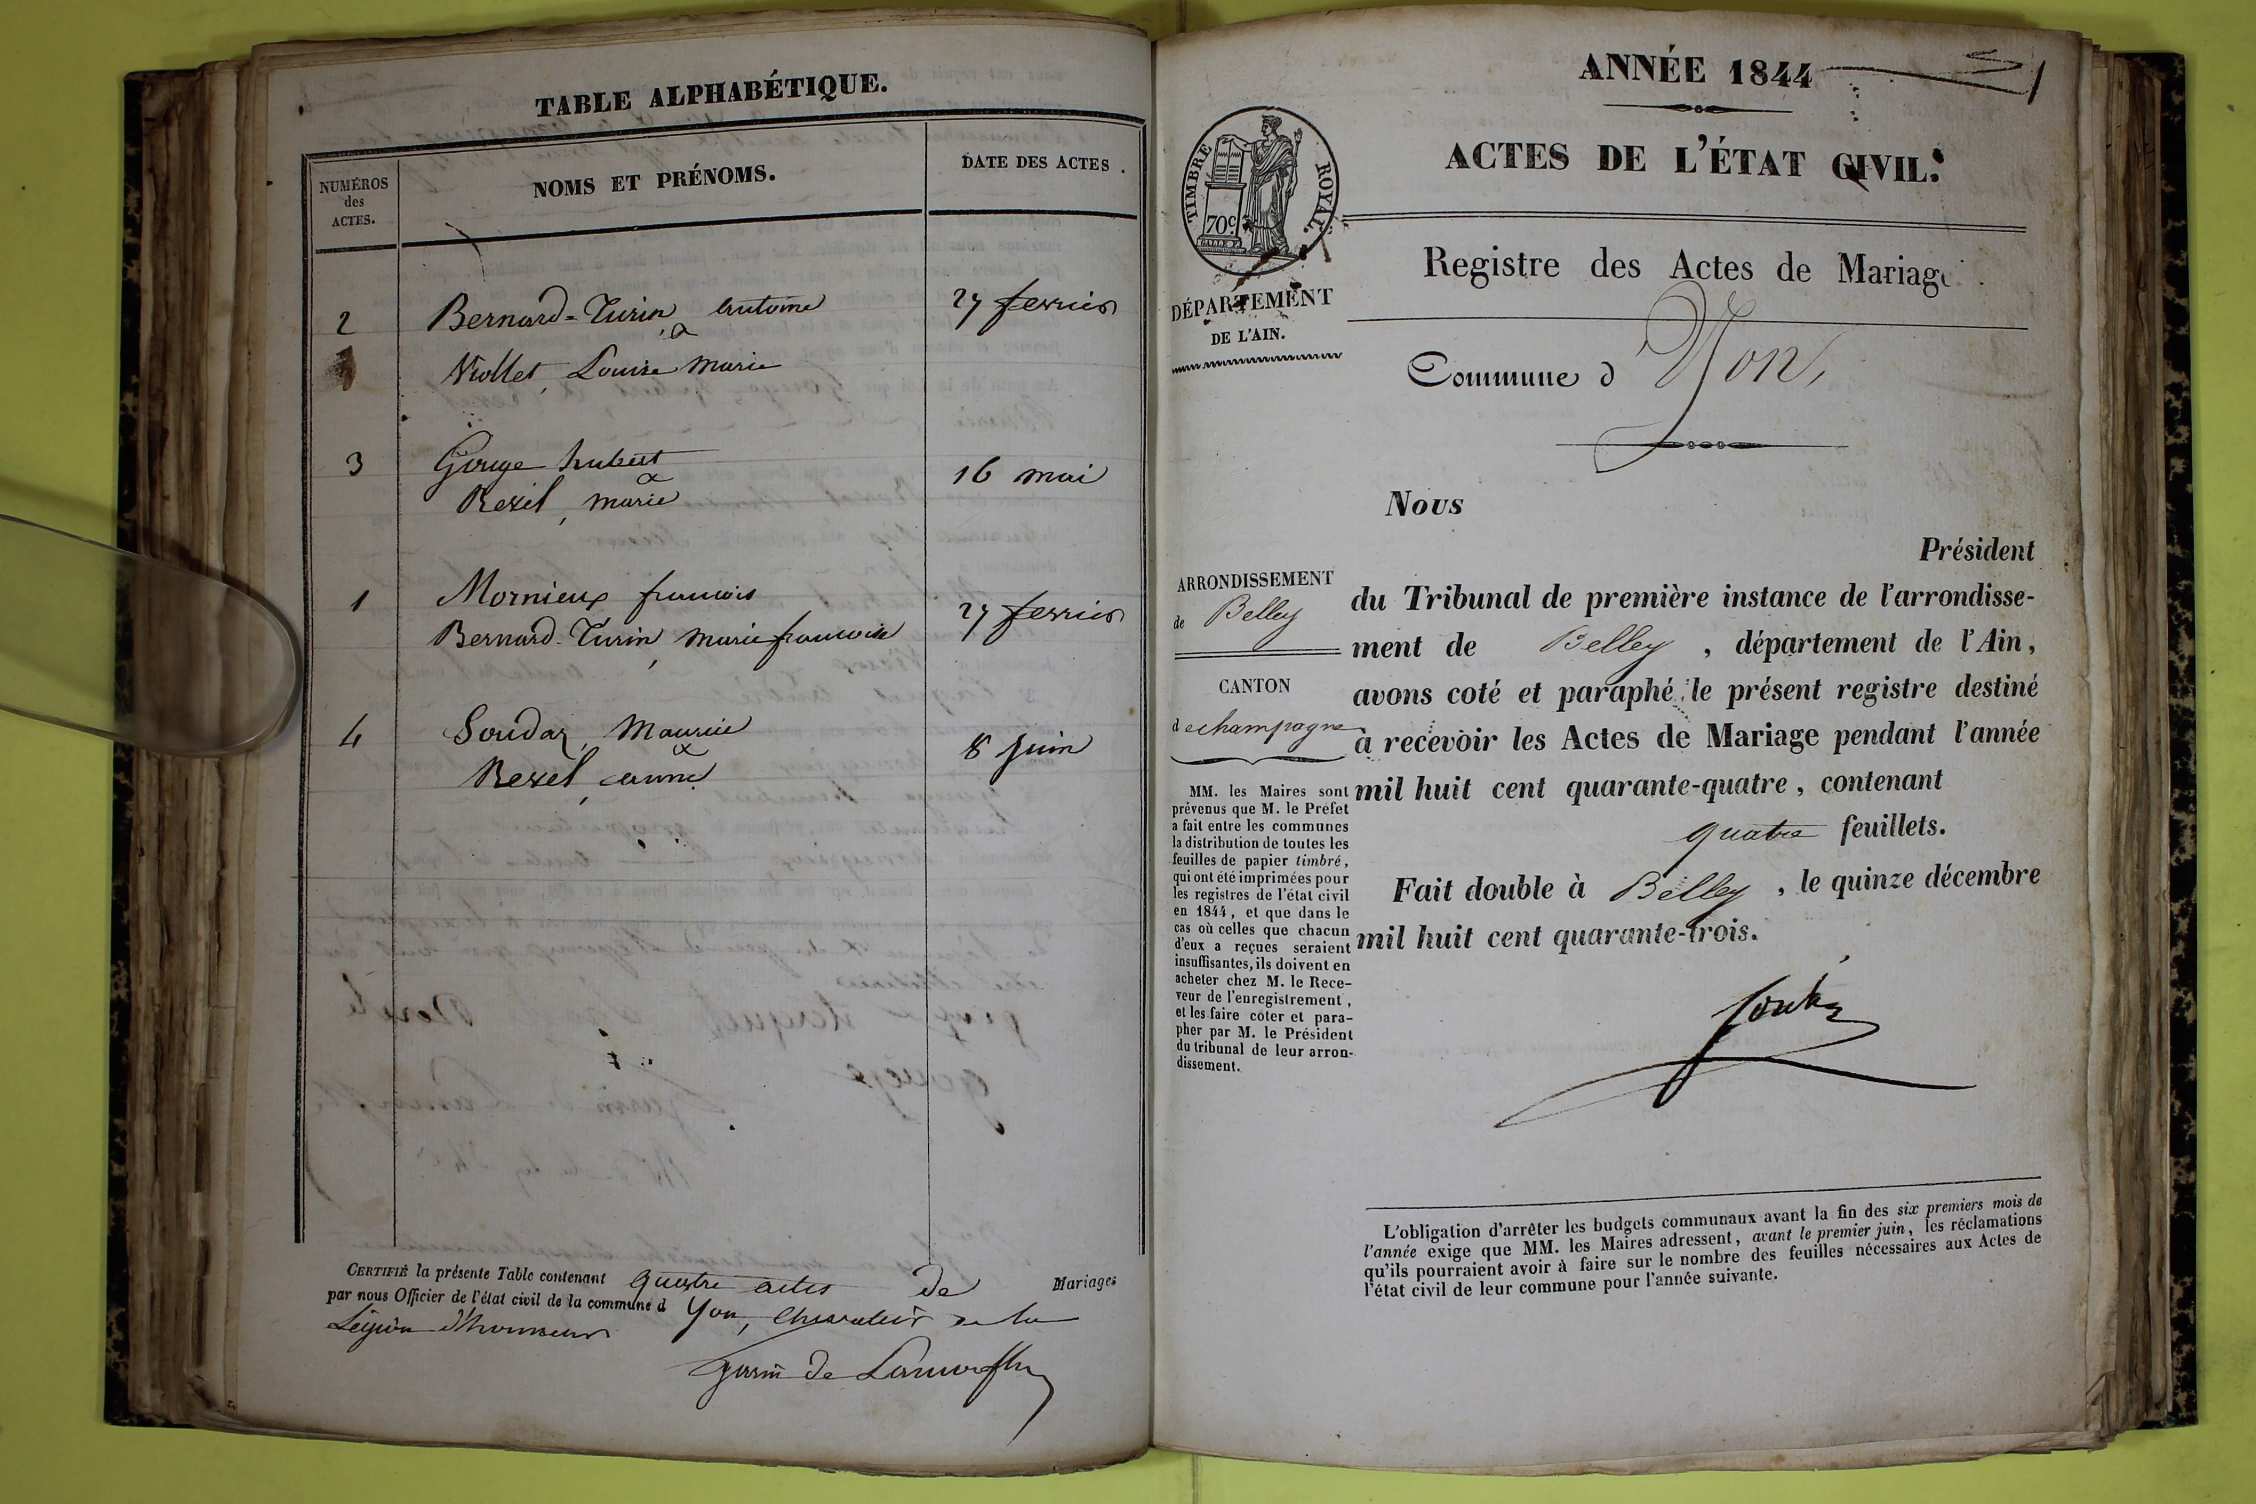 TABLE ALPHABÉTIQUE.
NUMÉROS
des
ACTES.
NOMS ET PRÉNOMS.
DATE DES ACTES.
2 Bernard-Turin antoine 27 fevrier
a
Viollet, Louise Marie
3 Gouge hubert 16 mai
a
Rezel, marie
1 Mornieux francois 27 fevrier
Bernard-Turin, marie francoise
4 Soudaz, Maurice 8 juin
a
Rezel, anne
CERTIFIÉ la présente Table contenant quatre actes de Mariages
par nous Officier de l'état civil de la commune d Yon, Chevalier de la
Légion d'honneur
ANNÉE 1844
ACTES DE L'ÉTAT CIVIL.
TIMBRE ROYAL.
70c
DÉPARTEMENT
DE L'AIN.
Registre des Actes de Mariage
Commune d'Yon,
Nous
Président
ARRONDISSEMENT
de Belley
CANTON
de champagne
du Tribunal de première instance de l'arrondisse-
ment de Belley, département de l'Ain,
avons coté et paraphé le présent registre destiné
à recevoir les Actes de Mariage pendant l'année
mil huit cent quarante-quatre, contenant
quatre feuillets.
Fait double à Belley, le quinze décembre
mil huit cent quarante-trois.
MM. les Maires sont
prévenus que M. le Préfet
a fait entre les communes
la distribution de toutes les
feuilles de papier timbré,
qui ont été imprimées pour
les registres de l'état civil
en 1844, et que dans le
cas où celles que chacun
d'eux a reçues seraient
insuffisantes, ils doivent en
acheter chez M. le Rece-
veur de l'enregistrement,
et les faire coter et para-
pher par M. le Président
du tribunal de leur arron-
dissement.
L'obligation d'arrêter les budgets communaux avant la fin des six premiers mois de
l'année exige que MM. les Maires adressent, avant le premier juin, les réclamations
qu'ils pourraient avoir à faire sur le nombre des feuilles nécessaires aux Actes de
l'état civil de leur commune pour l'année suivante.